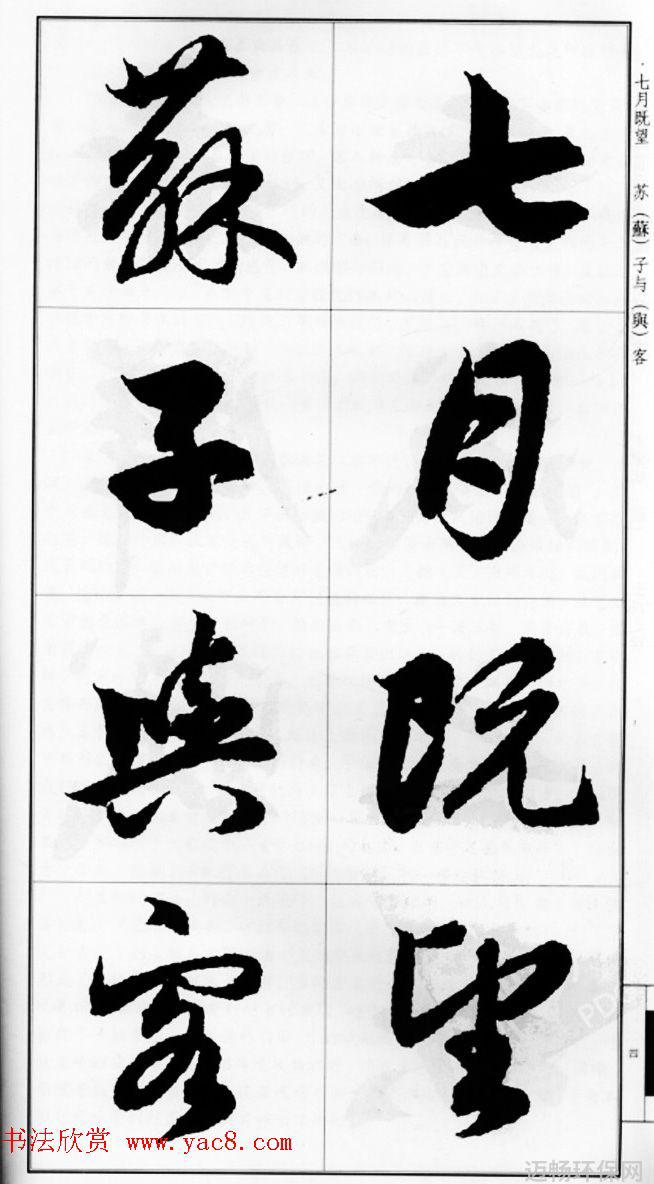 七月既望
蘇子與客
·七月既望 苏（蘇）子与（與）客
四
书法欣赏 www.yac8.com
迈畅环保网